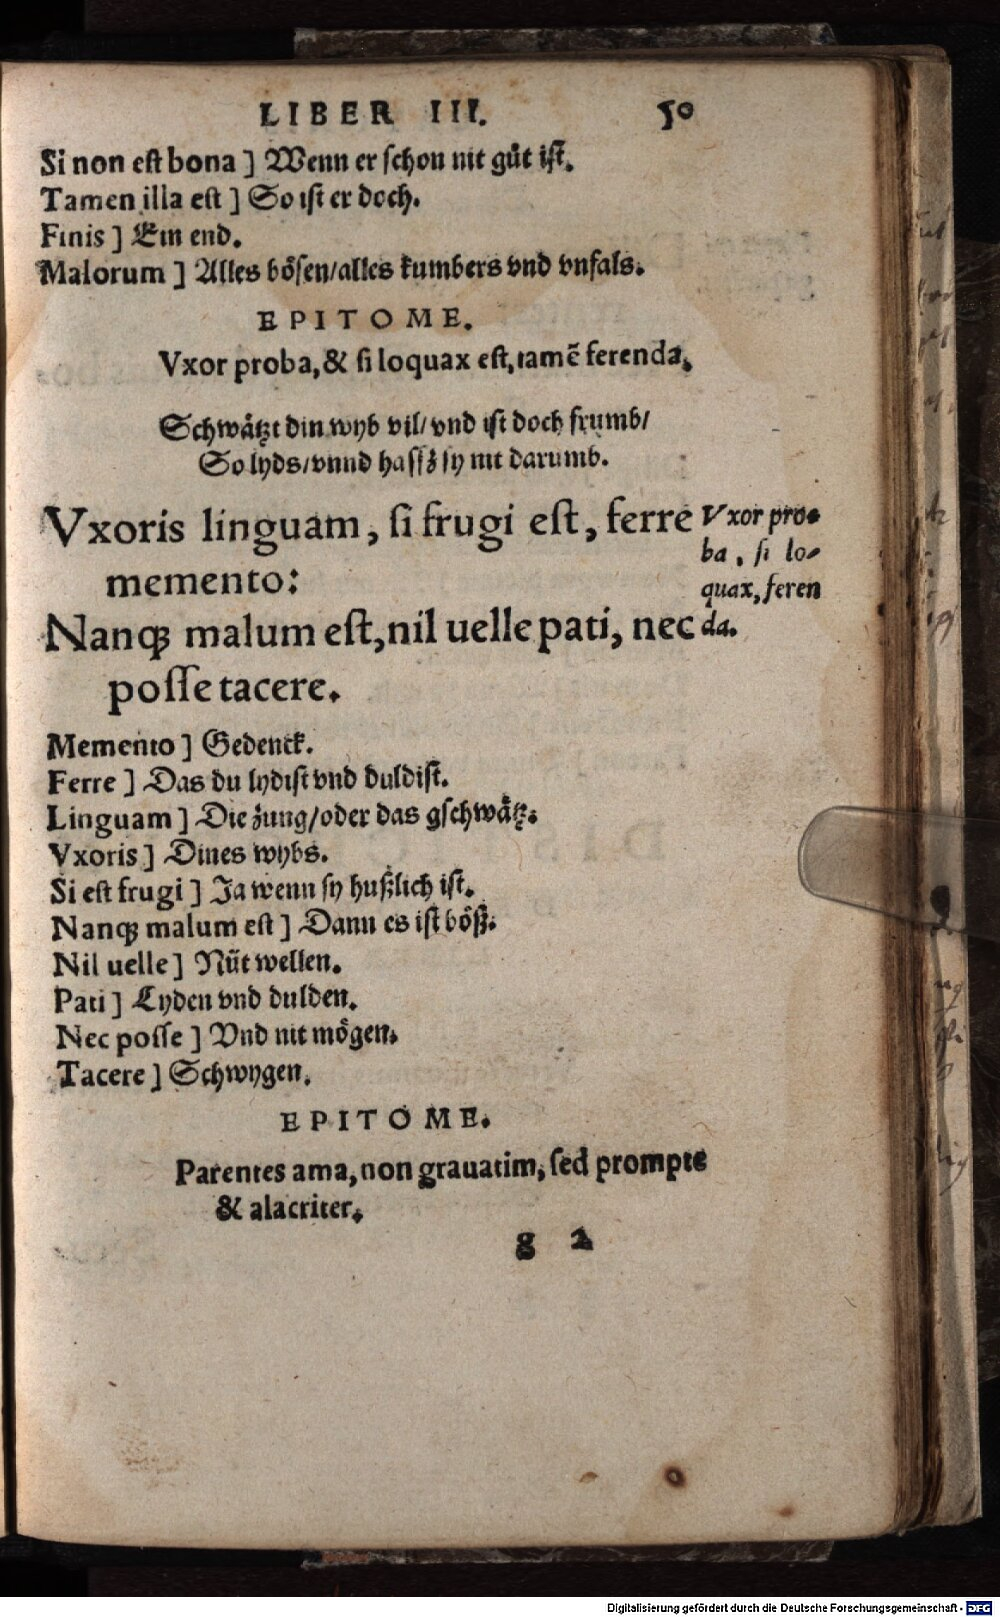 LIBER III. 50
Si non eſt bona ] Wenn er ſchon nit guͤt iſt.
Tamen illa eſt ] So iſt er doch.
Finis ] Ein end.
Malorum ] Alles boͤſen/alles kumbers vnd vnfals.
EPITOME.
Vxor proba, & ſi loquax eſt, tamẽ ferenda.
Schwaͤtzt din wyb vil/ vnd iſt doch frumb/
So lyds/vnnd haſſz ſy nit darumb.
Vxoris linguam, ſi frugi eſt, ferre
memento:
Nanqꝫ malum eſt, nil uelle pati, nec
poſſe tacere.
Vxor pro-
ba, ſi lo-
quax, feren
da.
Memento ] Gedenck.
Ferre ] Das du lydiſt vnd duldiſt.
Linguam ] Die zung/oder das gſchwaͤtz.
Vxoris ] Dines wybs.
Si eſt frugi ] Ja wenn ſy hußlich iſt.
Nanqꝫ malum eſt ] Dann es iſt boͤß.
Nil uelle ] Nuͤt wellen.
Pati ] Lyden vnd dulden.
Nec poſſe ] Vnd nit moͤgen.
Tacere ] Schwygen.
EPITOME.
Parentes ama, non grauatim, ſed prompte
& alacriter.
g 2
Digitalisierung gefördert durch die Deutsche Forschungsgemeinschaft - DFG